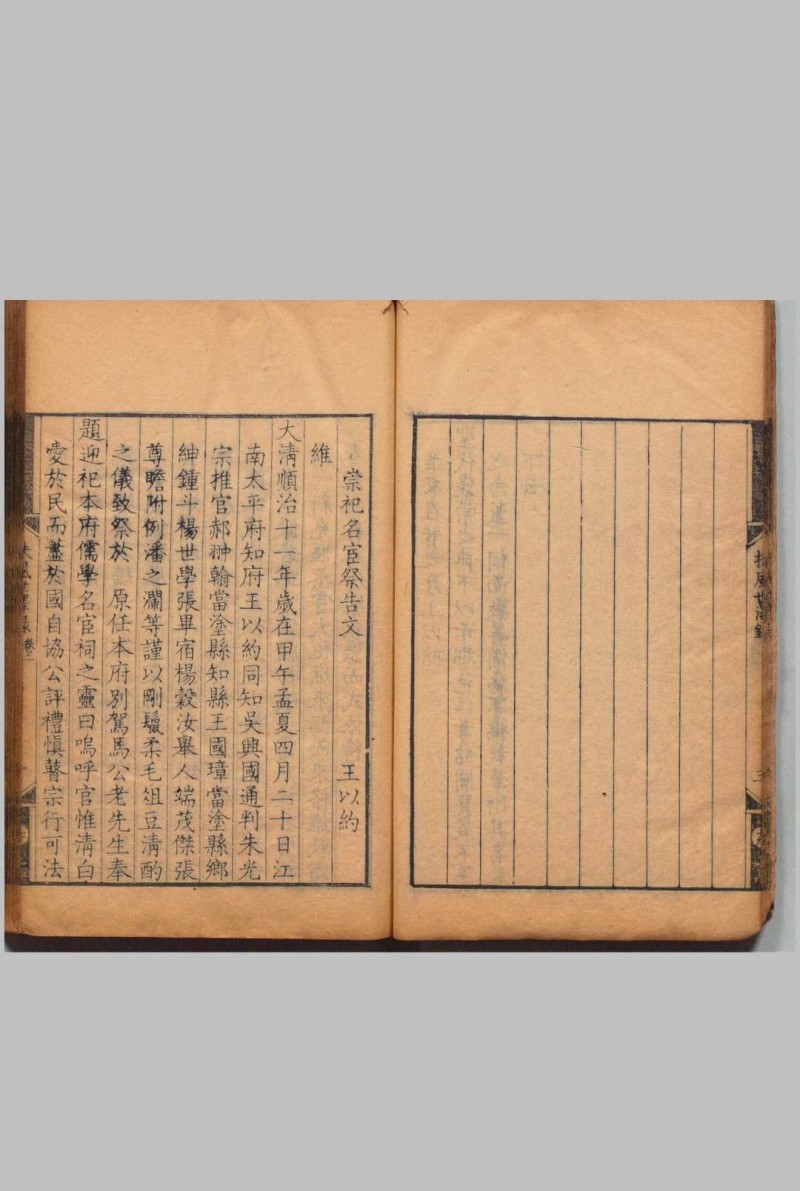 崇祀名宦祭告文 王以約
維
大清順治十一年歲在甲午孟夏四月二十日江
南太平府知府王以約同知吳興國通判朱光
宗推官郝翀翰當塗縣知縣王國璋當塗縣鄉
紳鍾斗楊世學張畢宿楊穀汝舉人端茂傑張
尊瞻附例潘之瀾等謹以剛鬛柔毛俎豆清酌
之儀致祭於 原任本府別駕馬公老先生奉
題迎祀本府儒學名宦祠之靈曰嗚呼官惟清白
愛於民而藎於國自協公評禮慎瞽宗行可法